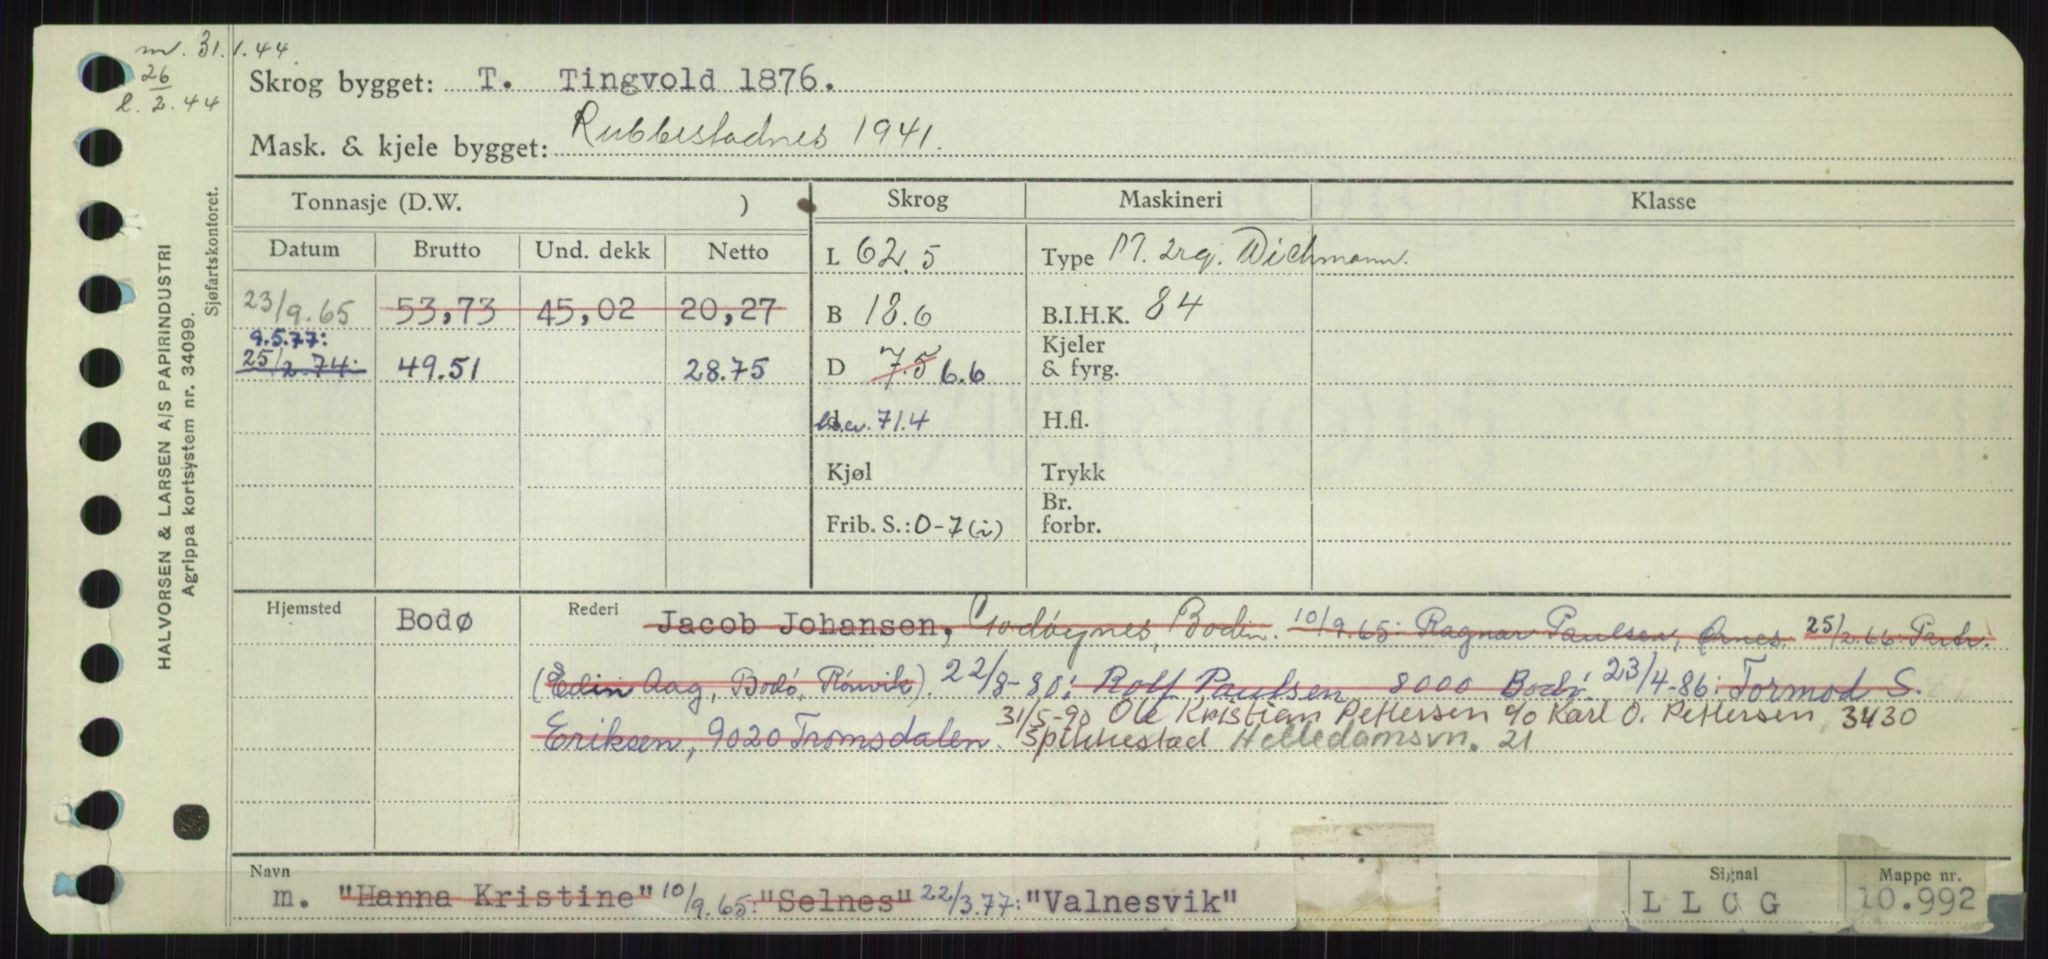 m. 31.1.44
26
l. 2.44
Skrog bygget: T. Tingvold 1876.
Mask. & kjele bygget: Rubbestadnes 1941.
HALVORSEN & LARSEN A/S PAPIRINDUSTRI
Agrippa kortsystem nr. 34099.
Sjøfartskontoret.
Tonnasje (D.W. ) Skrog Maskineri Klasse
Datum Brutto Und. dekk Netto L 62.5 Type M. 2rg. Wichmann.
23/9.65 53,73 45,02 20,27 B 18.6 B.I.H.K. 84
9.5.77:
25/2.74: 49.51 28.75 D 7.5 6.6 Kjeler & fyrg.
71.4 H.fl.
Kjøl Trykk
Frib. S.: 0-7 (i) Br. forbr.
Hjemsted Bodø Rederi Jacob Johansen, Godøynes, Bodin. 10/9.65: Ragnar Paulsen, Ørnes. 25/2.66 Partr.
(Edin Aag, Bodø, Rønvik). 22/8-80: Rolf Paulsen 8000 Bodø. 23/4-86: Tormod S.
Eriksen, 9020 Tromsdalen. 31/5-90 Ole Kristian Pettersen c/o Karl O. Pettersen, 3430
Spikkestad Helledamsvn. 21
Navn Signal Mappe nr.
m. "Hanna Kristine" 10/9.65: "Selnes" 22/3.77: "Valnesvik" L L C G 10.992